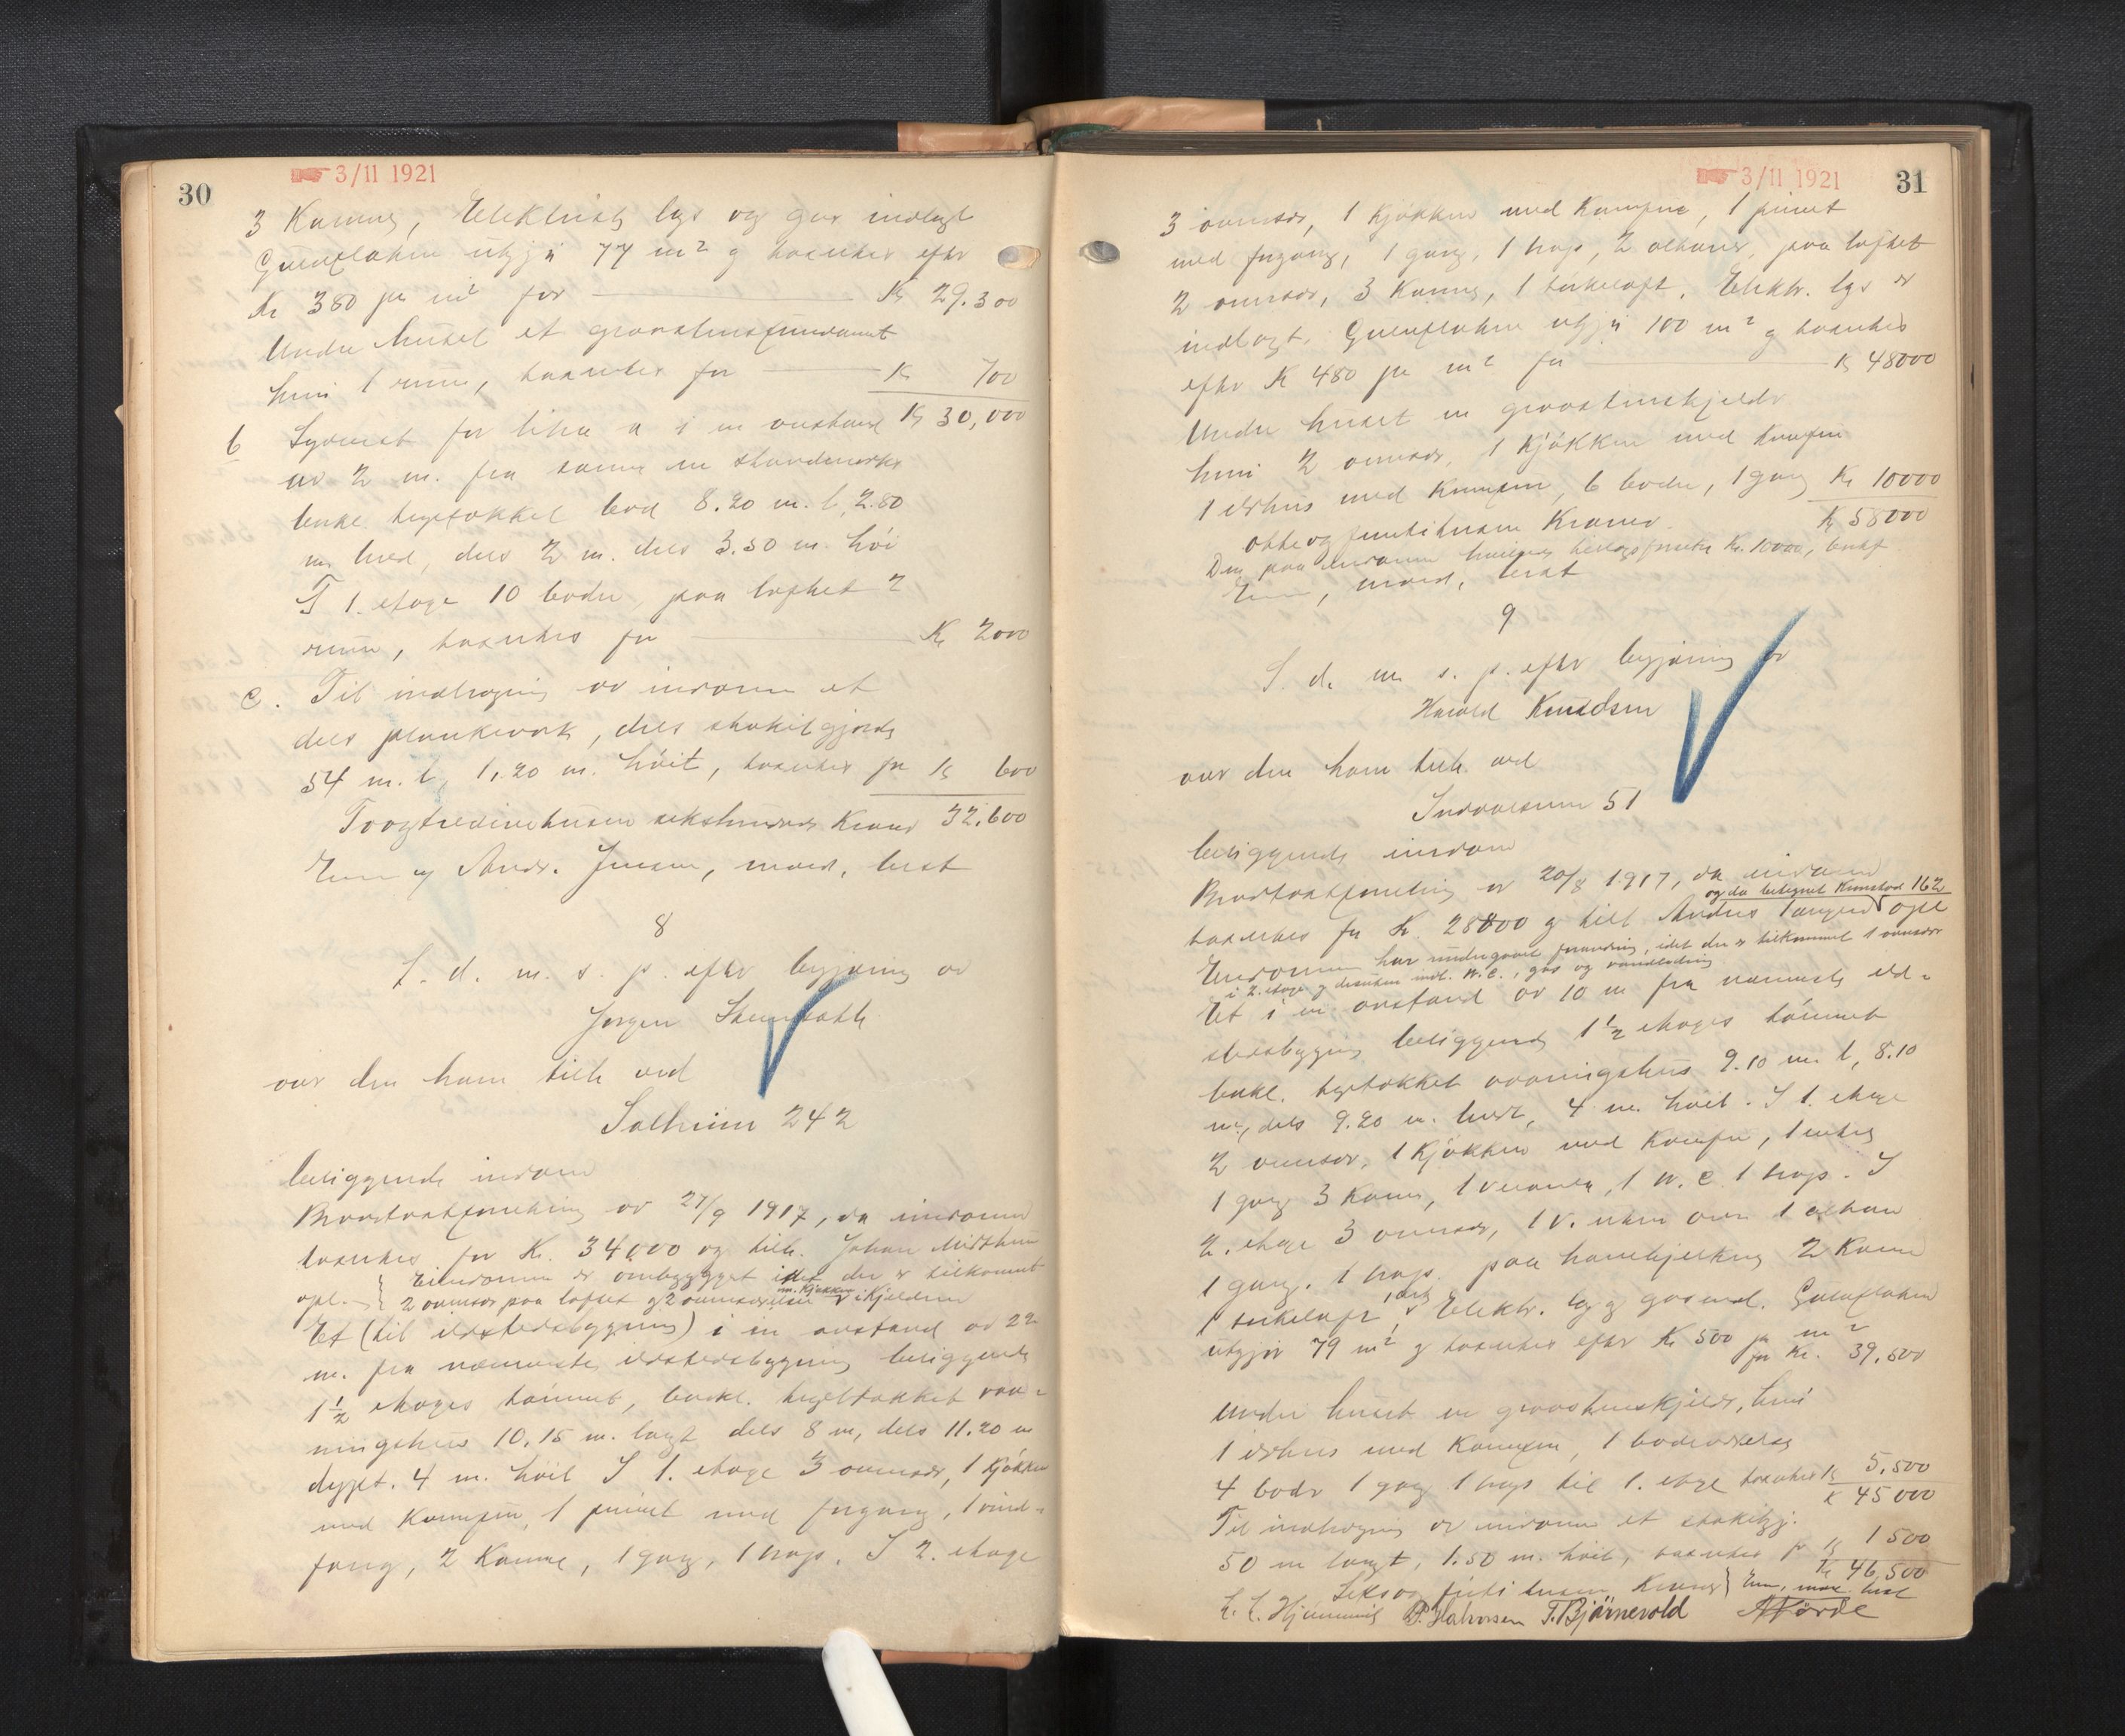 30
3/11 1921
3 Kamre, Elektrisk lys og gas indlagt
Grundflaten utgjør 77 m² og taxeres efter
Kr 380 pr m² for Kr 29.300
Under huset et graastensfundament
hvori 1 rum, taxeres for Kr 700
Kr 30,000
b Sydvest for litra a i en avstand
av 2 m. fra samme en
bekl. tegltækket bod 8.20 m. l, 2.80
m. bred, dels 2 m. dels 3.50 m. høi
I 1. etage 10 boder, paa loftet 2
rum, taxeres for Kr 2000
c. Til indhegning av eiendommen et
dels plankeverk, dels stakitgjerde
54 m. l, 1,20 m. høit, taxeres for Kr 600
Toogtredivetusen sekshundrede Kroner 32.600
Andr. Jensen,
8
S. d. m. s. p. efter begjæring av
Jørgen
over den ham tilh. ved
Solheim 242
beliggende eiendom
Brandtakstforretning av 27/9 1917, da eiendommen
taxertes for Kr. 34000 og tilh. Johan
opl. Eiendommen er ombygget idet der er tilkommet
2 ovnsrør paa loftet og 2 ovnsværelser m. kjøkken i Kjelderen
Et (til ildstedsbygning) i en avstand av 22
m. fra nærmeste ildstedsbygning beliggende
1½ etages tømmret, bekl. tegltækket vaa-
ningshus 10.15 m. langt dels 8 m, dels 11.20 m
dypt. 4 m. høit I 1. etage 3 ovnsrør, 1 Kjøkken
med Komfyr, 1 privet med forgang, 1 vind-
fang, 2 Kamre, 1 gang, 1 trap. I 2. etage
31
3/11 1921
3 ovnsrør, 1 Kjøkken med Komfyr, 1 privet
med forgang, 1 gang, 1 trap, 2 altaner, paa loftet
2 ovnsrør, 3 Kamre, 1 tørkeloft. Elektr. lys er
indlagt. Grundflaten utgjør 100 m² og taxeres
efter Kr 480 pr m² for Kr 48000
Under huset en graastenskjelder
hvori 2 ovnsrør, 1 Kjøkken med Komfyr
1 ildhus med Komfyr, 6 boder, 1 gang Kr 10000
Kr 58000
otteogfemtitusen Kroner.
Den paa eiendommen Kr. 10000,
9
S. d. m. s. p. efter begjæring av
Harald Knudsen
over den ham tilh. ved
51
beliggende eiendom
Brandtakstforretning av 20/8 1917, da eiendommen
og da betegnet 162
taxertes for Kr. 28800 og tilh. Anders opl
Eiendommen har undergaaet forandring, idet der er tilkommet 1 ovnsrør
i 2. etage og desuten indl. W.C., gas og vandledning
Et i en avstand av 10 m fra nærmeste ild-
stedsbygning beliggende 1½ etages tømmret
bekl. tegltækket vaaningshus 9.10 m. l, 8.10
m., dels 9.20 m. bredt, 4 m. høit. I 1. etage
2 ovnsrør, 1 Kjøkken med Komfyr, 1 entre
1 gang 3 Kamre, 1 veranda, 1 W.C. 1 trap. I
2. etage 3 ovnsrør, 1 altan
1 gang. 1 trap. paa hanebjelken 2 Kamre
1 tørkeloft, Elektr. lys og gas indl. Grundflaten
utgjør 79 m² og taxeres efter Kr 500 pr m²
for Kr. 39.500
Under huset en graastenskjelder, hvori
1 ildhus med Komfyr, 1 badeværelse
4 boder 1 gang 1 trap til 1. etage taxeres Kr 5.500
K 45000
Til indhegning av eiendommen et stakitgj.
50 m langt, 1.50 m. høit, taxeres for Kr 1500
Kr 46,500
Seksogfirti tusen Kroner
P. Halvorsen T. Bjørnevold